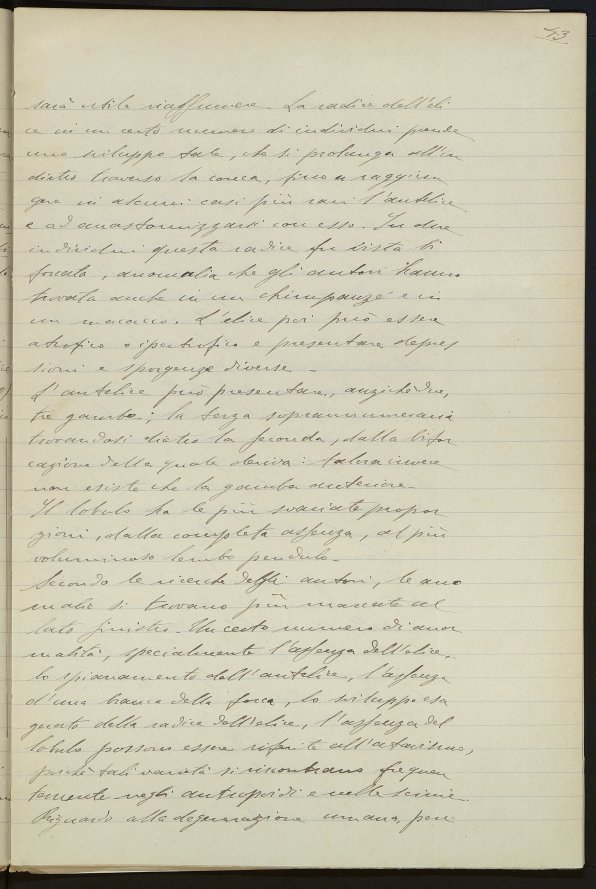 43
sarà utile riassumere. La radice dell'eli
ce in un certo numero di individui prende
uno sviluppo tale, che si prolunga all'in
dietro traverso la conca, fino a raggiun
gere in alcuni casi più rari l'antelice
e ad anastomizzarsi con esso. In due
individui questa radice fu vista bi
forcata, anomalia che gli autori hanno
trovata anche in un chimpanzé e in
un macacco. L'elice poi può essere
atrofico o ipertrofico e presentare depres
sioni e sporgenze diverse.
L'antelice può presentare, anzichè due,
tre gambe; la terza soprannumeraria
trovandosi dietro la seconda, dalla bifor
cazione della quale deriva: talora invece
non esiste che la gamba anteriore.
Il lobulo ha le più svariate propor
zioni, dalla completa assenza, al più
voluminoso lembo pendulo.
Secondo le ricerche degli autori, le ano
malie si trovano più marcate al
lato sinistro. Un certo numero di anor
malità, specialmente l'assenza dell'elice,
lo spianamento dell'antelice, l'assenza
d'una branca della forca, lo sviluppo esa
gerato della radice dell'elice, l'assenza del
lobulo possono essere riferite all'atavismo,
poichè tali varietà si riscontrano frequen
temente negli antropoidi e nelle scimie.
Riguardo alla degenerazione umana, però